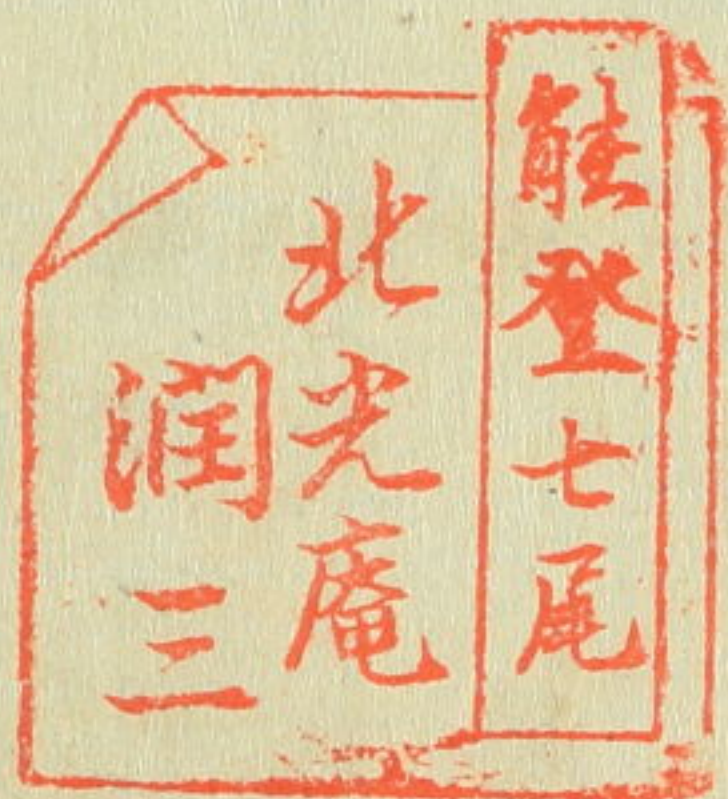 能登七尾
北光庵
潤三